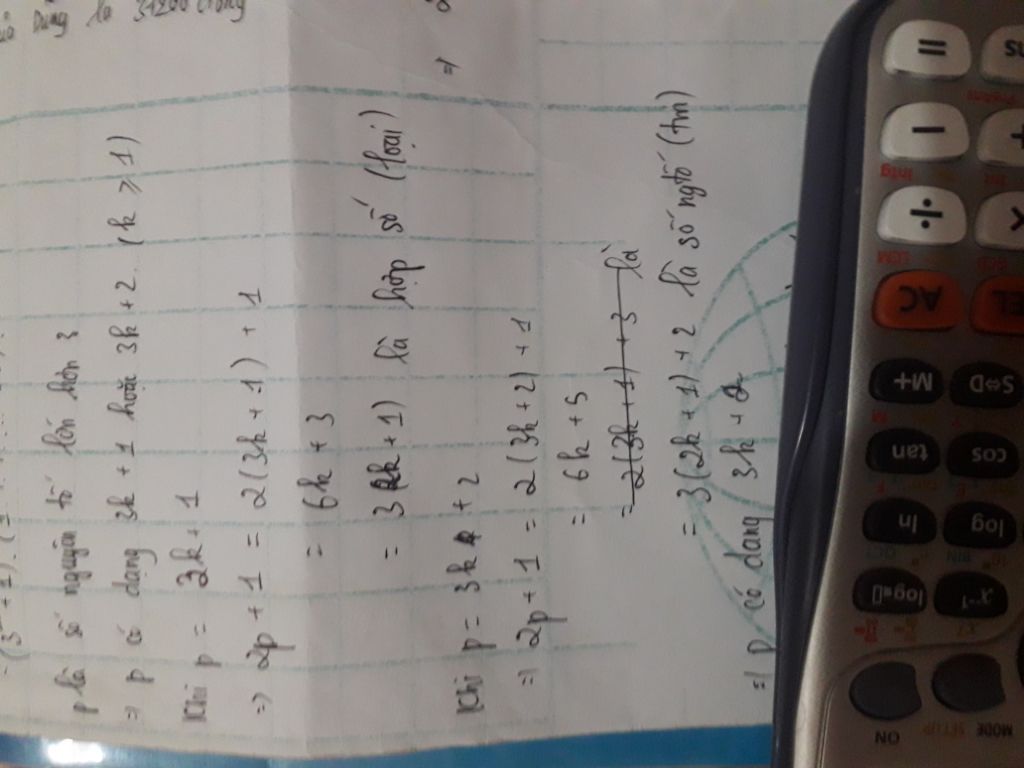 là 31200 (đồng
p là số nguyên tố lớn hơn 3
=> p có dạng 3k + 1 hoặc 3k + 2 (k ≥ 1)
Khi p = 3k + 1
=> 2p + 1 = 2(3k + 1) + 1
= 6k + 3
= 3(2k + 1) là hợp số (loại)
Khi p = 3k + 2
=> 2p + 1 = 2(3k + 2) + 1
= 6k + 5
= 2(3k + 1) + 3 là
= 3(2k + 1) + 2 là số ngtố (tm)
=> p có dạng 3k + 2
=
−
÷
AC
M+
S⇔D
tan
cos
ln
log
log
x⁻¹
ON
MODE SETUP